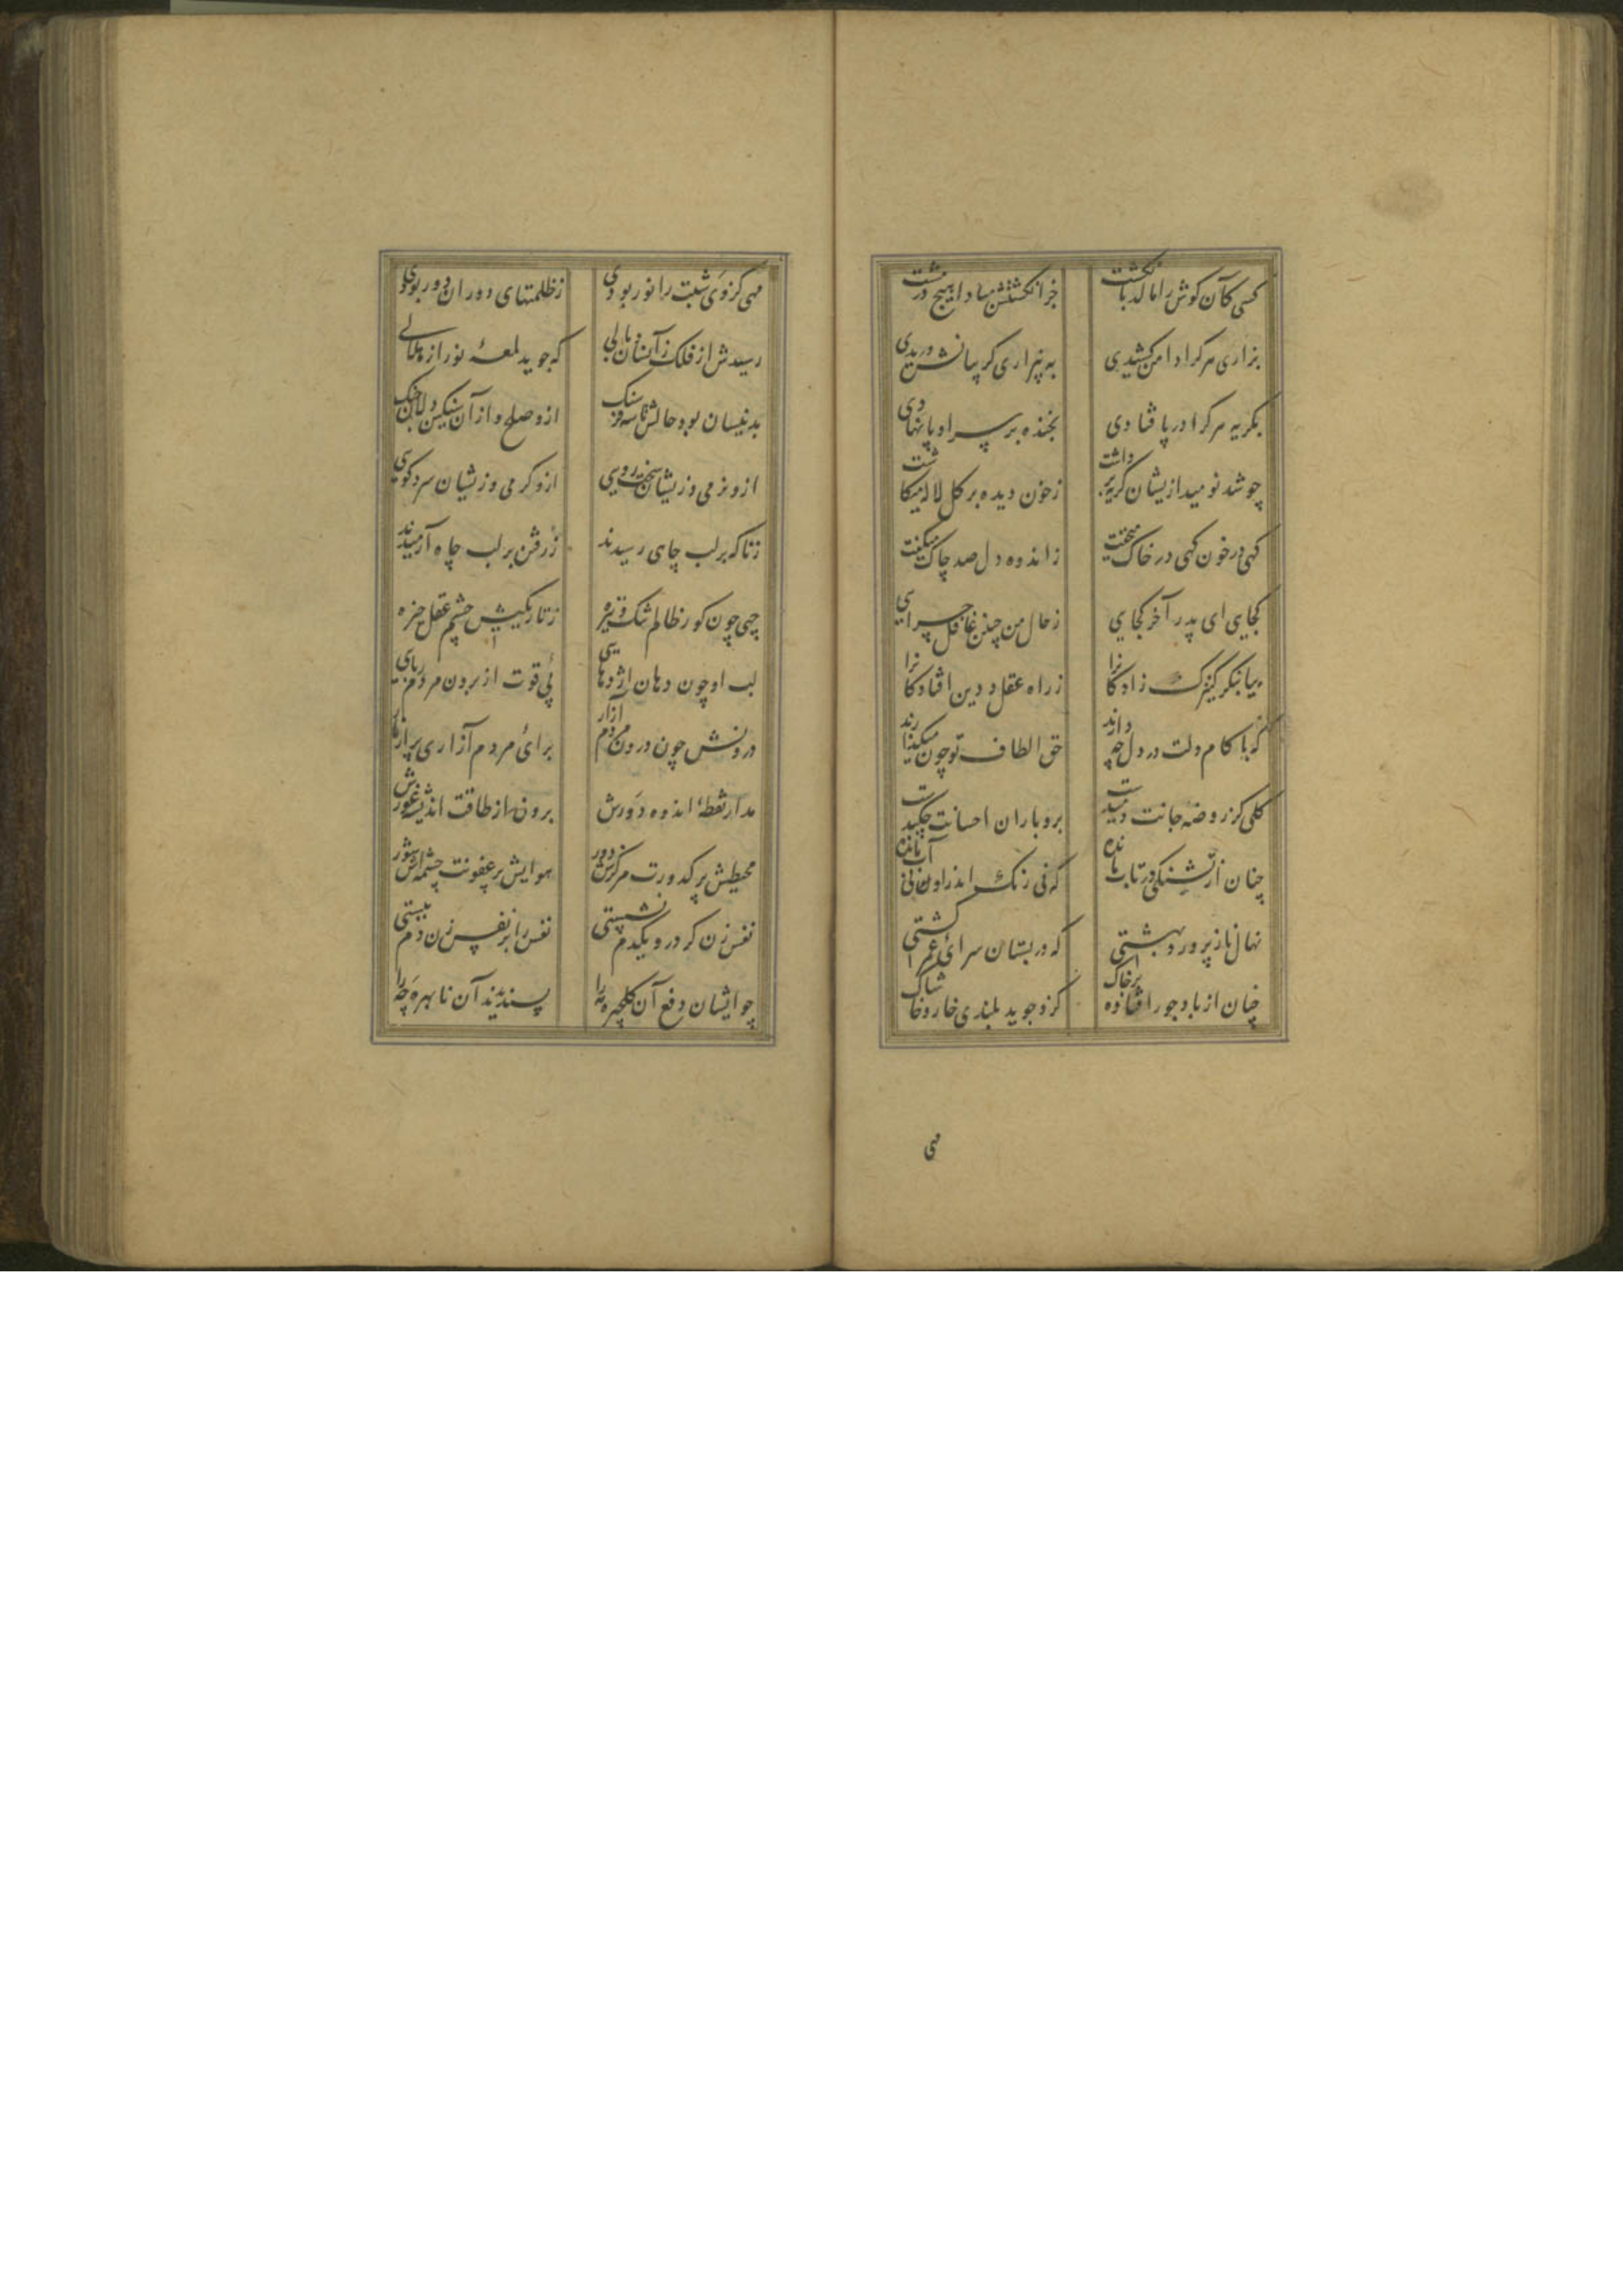 کسی کان کوش را مالد بانکشت جز انکشتش مبادا هیچ در مشت
بزاری هر کرا دامن کشیدی به بیزاری کریبانش دریدی
بکریه هر کرا در پا فتادی بخنده بر سر او پا نهادی
چو شد نومید ازیشان کریه برداشت ز خون دیده بر کل لاله میکاشت
کهی در خون کهی در خاک میخفت ز اندوه دل صد چاک میکفت
کجایی ای پدر آخر کجایی ز حال من چنین غافل چرایی
بیا بنکر کنیزک زادکانرا ز راه عقل و دین افتادکانرا
که با کام دلت در دل چه دارند حق الطاف تو چون میکذارند
کلی کز روضه جانت دمیدست برو باران احسانت چکیدست
چنان از تشنکی در تاب مانده که نی رنک اندر او نی آب مانده
نهال ناز پرورد بهشتی که در بستان سرای عمر کشتی
چنان از باد جور افتاده بر خاک کزو جوید بلندی خار و خاشاک
مهی
مهی کز وی شبت را نور بودی ز ظلمتهای دوران دور بودی
رسیدش از فلک زانسان وبالی که جوید لمعهٔ نور از هلالی
بدینسان بود حالش تا سه فرسنک ازو صلح و از آن سنکین دلان جنک
ازو نرمی وزیشان سخت رویی ازو کرمی وزیشان سرد کویی
ز ناکه بر لب چاهی رسیدند ز رفتن بر لب چاه آرمیدند
چهی چون کور ظالم تنک و تیره ز تاریکیش چشم عقل خیره
لب او چون دهان اژدهایی پی قوت از برون مردم ربایی
درونش چون درون مردم آزار برای مردم آزاری پر از مار
مدار نقطهٔ اندوه دورش برون از طاقت اندیشه غورش
محیطش پر کدورت مرکزش دور هوایش پر عفونت چشمه اش شور
نفس زن کر درو یکدم نشستی نفس را بر نفس زن دم ببستی
چو ایشان دفع آن کلچهره را پسندیدند آن نا بهره چه را